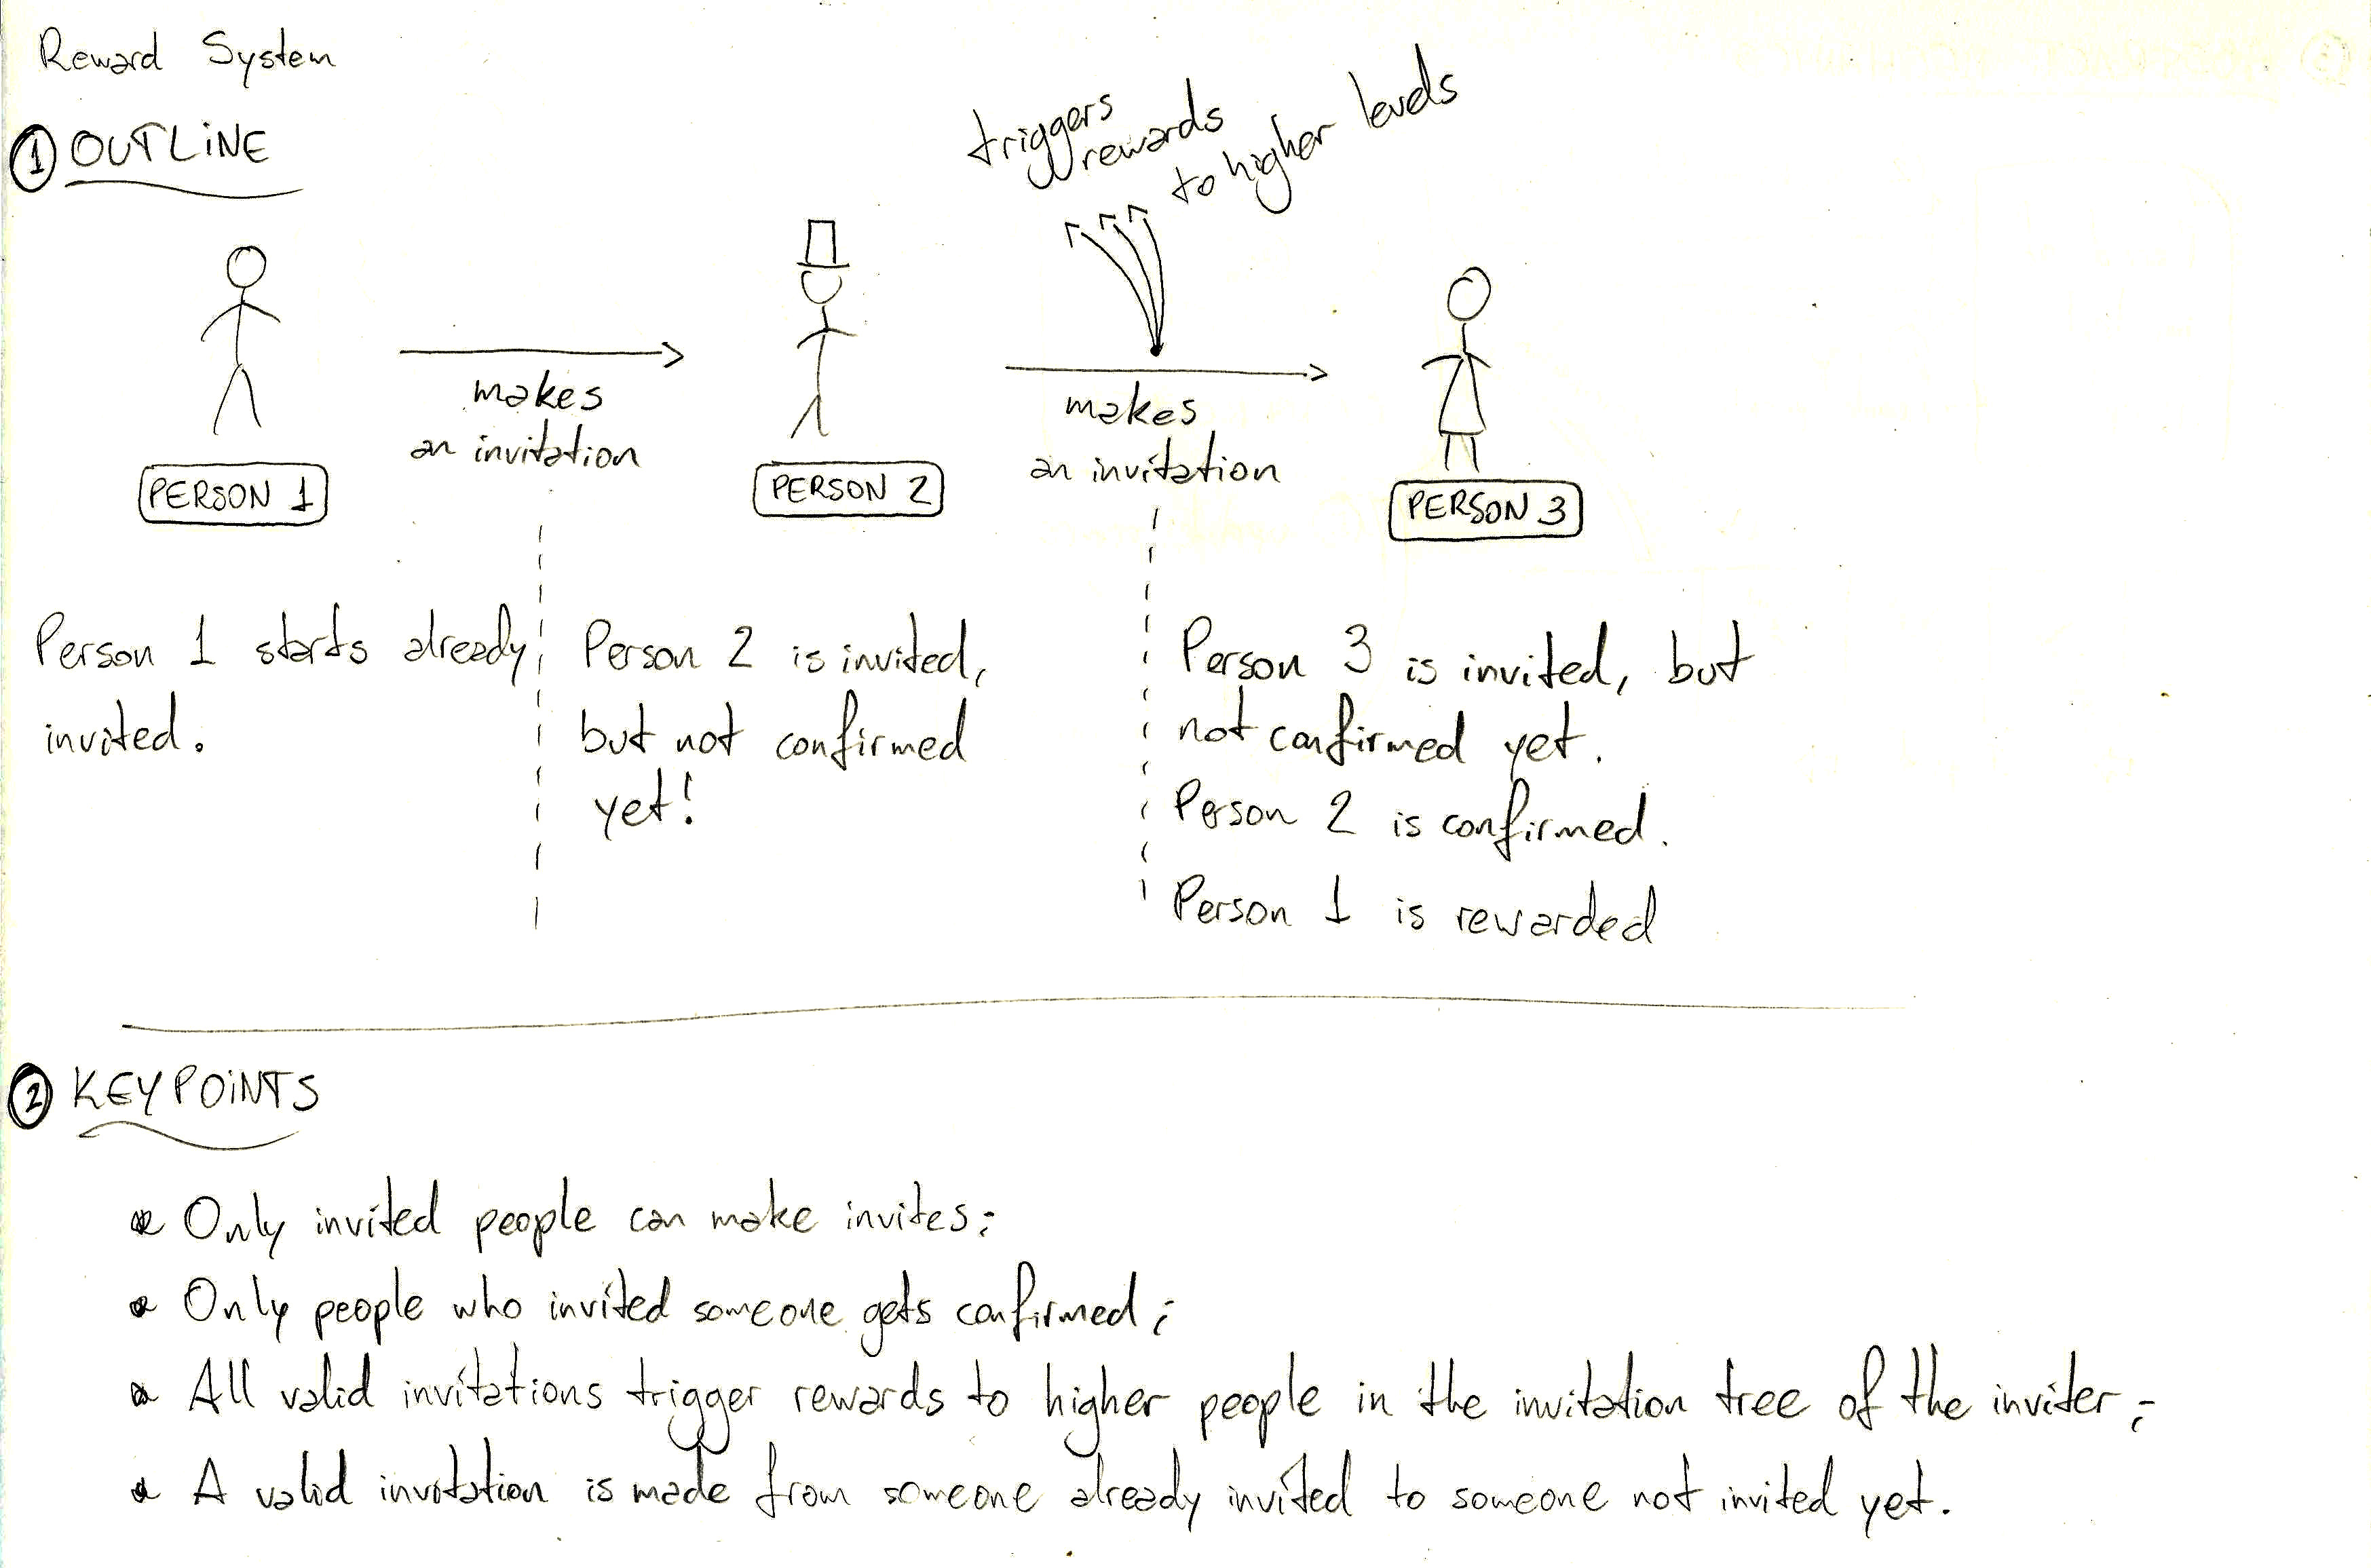 Reward System
1 OUTLINE
triggers
rewards
to higher levels
makes
an invitation
makes
an invitation
PERSON 1
PERSON 2
PERSON 3
Person 1 starts already
invited.
Person 2 is invited,
but not confirmed
yet!
Person 3 is invited, but
not confirmed yet.
Person 2 is confirmed.
Person 1 is rewarded
2 KEY POINTS
• Only invited people can make invites;
• Only people who invited someone gets confirmed;
• All valid invitations trigger rewards to higher people in the invitation tree of the inviter;
• A valid invitation is made from someone already invited to someone not invited yet.